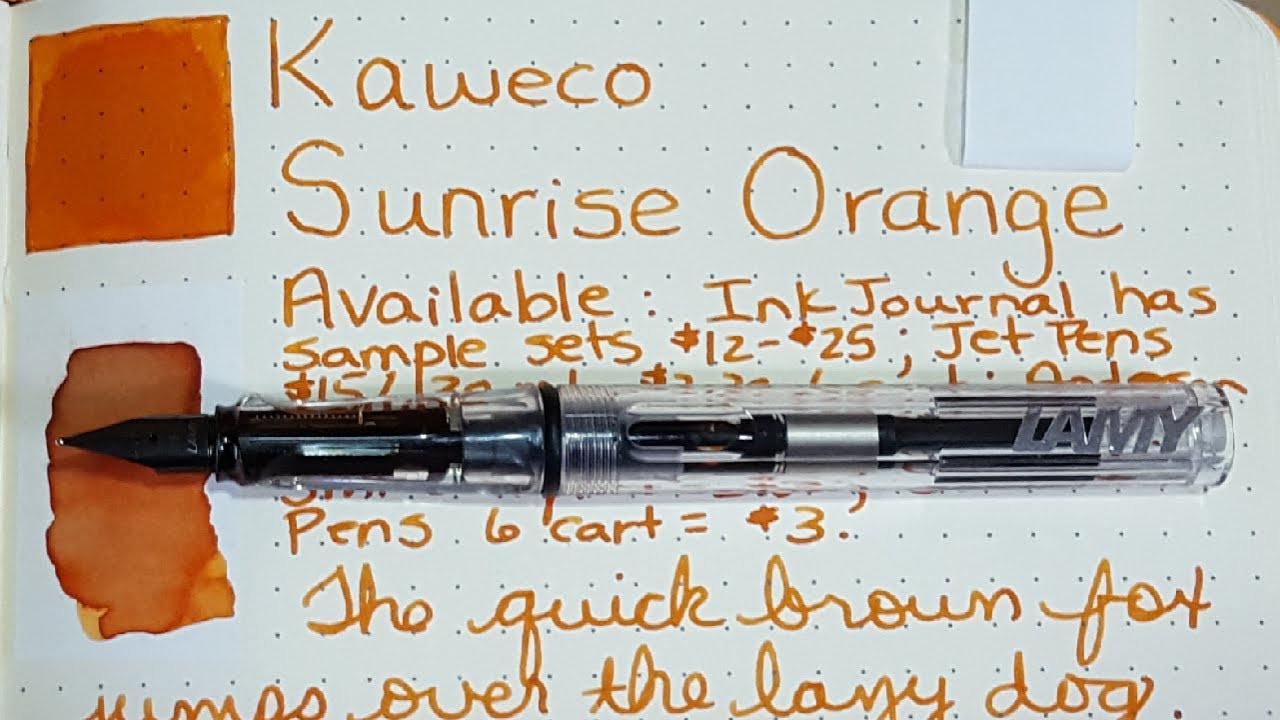 Kaweco
Sunrise Orange
Available: Ink Journal has
sample sets $12-$25; Jet Pens
$15/
LAMY
Pens 6 cart = $3.
The quick brown fox
jumps over the lazy dog.